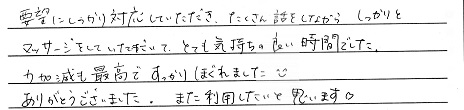 要望にしっかり対応していただき、たくさん話をしながら しっかりと
マッサージをしていただいて、とても気持ちの良い時間でした。
力加減も最高で すっかりほぐれました☺
ありがとうございました。また利用したいと思います。